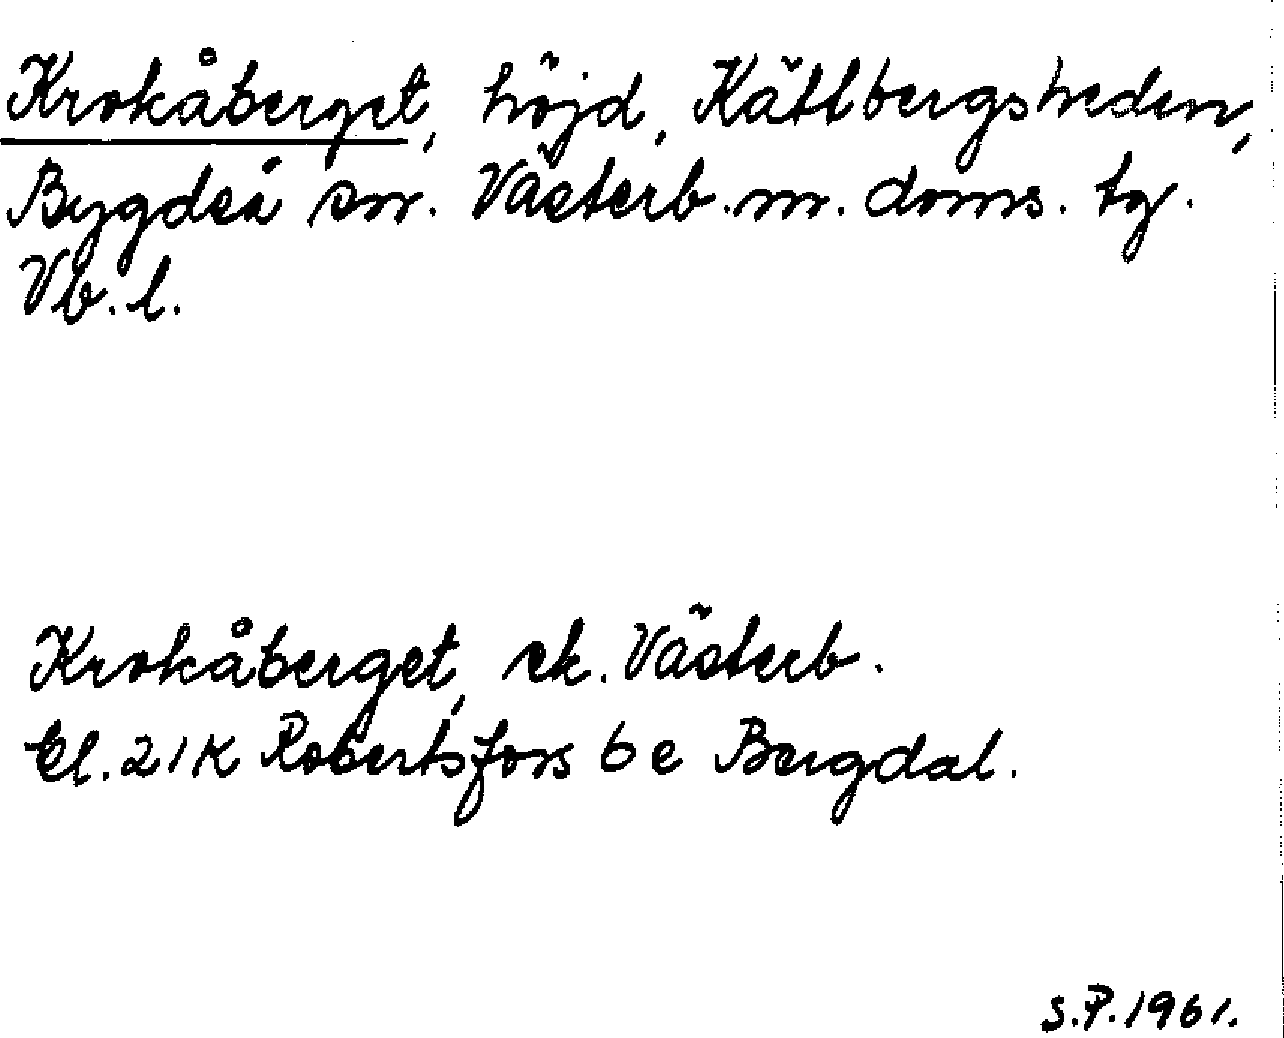 Krokåberget, höjd, Kättbergsheden,
Bygdeå sn. Västerb. m. doms. tg.
Vb. l.
Krokåberget, ek. Västerb.
bl. 21K Robertsfors 6e Bergdal.
S.P. 1961.